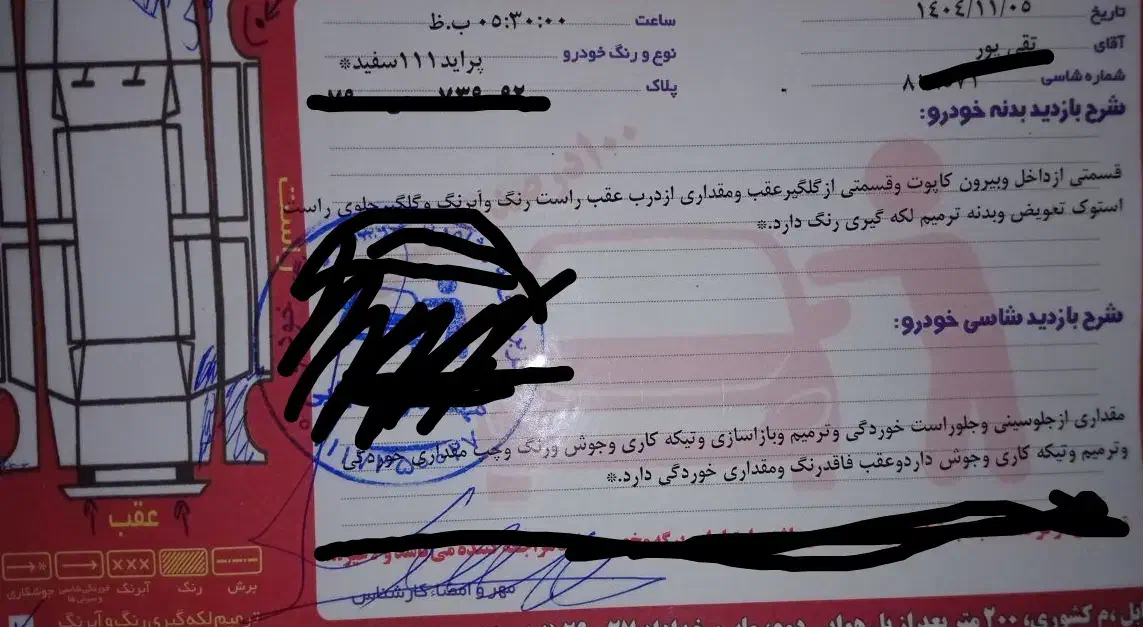 تاریخ ۱۴۰۴/۱۱/۰۵
ساعت ۰۵:۳۰:۰۰ ب.ظ
آقای تقی پور
نوع و رنگ خودرو پراید۱۱۱سفید*
شماره شاسی
پلاک
شرح بازدید بدنه خودرو:
قسمتی ازداخل وبیرون کاپوت وقسمتی ازگلگیرعقب ومقداری ازدرب عقب راست رنگ وآبرنگ وگلگیرجلوی راست
استوک تعویض وبدنه ترمیم لکه گیری رنگ دارد.*
شرح بازدید شاسی خودرو:
مقداری ازجلوسینی وجلوراست خوردگی وترمیم وبازاسازی وتیکه کاری وجوش ورنگ وچپ مقداری خوردگی
وترمیم وتیکه کاری وجوش داردوعقب فاقدرنگ ومقداری خوردگی دارد.*
مهر و امضاء کارشناس
راست
عقب
برش
رنگ
آبرنگ
خوردگی شاسی و سینی ها
جوشکاری
ترمیم لکه گیری رنگ و آبرنگ
پل ،م کشوری، ۲۰۰ متر بعد از پل هوایی